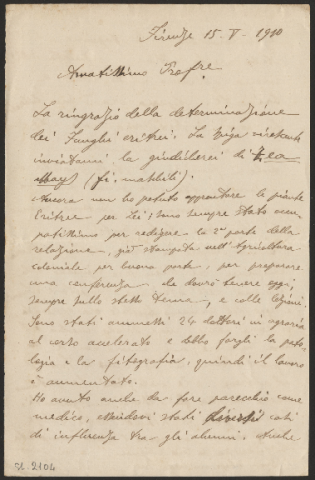 Firenze 15-V-1910
Amatissimo Prof.re
La ringrazio della determinazione
dei funghi eritrei. La
inviatami la giudicherei di Zea
Mays (fi, mashili).
Ancora non ho potuto approntare le piante
Eritree per Lei; sono sempre stato occu
patissimo per redigere la 2a parte della
relazione, già stampata nell'Agricoltura
coloniale per buona parte, per preparare
una conferenza - da dover tenere oggi,
sempre sullo stesso tema, e colle lezioni.
Sono stati ammessi 24 dottori in agraria
al corso accelerato e debbo fargli la pato
logia e la fitografia, quindi il lavoro
è aumentato.
Ho avuto anche da fare parecchio come
medico, essendovi stati diversi casi
di influenza tra gli alunni. Anche
Sc. 2104